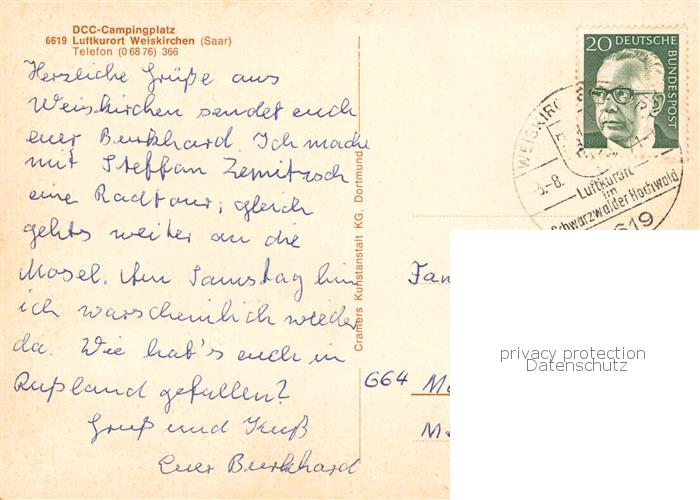 DCC-Campingplatz
6619 Luftkurort Weiskirchen (Saar)
Telefon (0 68 76) 366
Herzliche Grüße aus
Weiskirchen sendet euch
euer Burkhard. Ich mache
mit Steffan Zemitzsch
eine Radtour; gleich
gehts weiter an die
Mosel. Am Samstag bin
ich warscheinlich wieder
da. Wie hat's euch in
Rußland gefallen?
Gruß und Kuß
Euer Burkhard
Cramers Kunstanstalt KG, Dortmund
20 DEUTSCHE BUNDESPOST
WEISKIRC
-8.
Luftkurort
im
Schwarzwälder Hochwald
6619
Fam
664 Me
privacy protection
Datenschutz